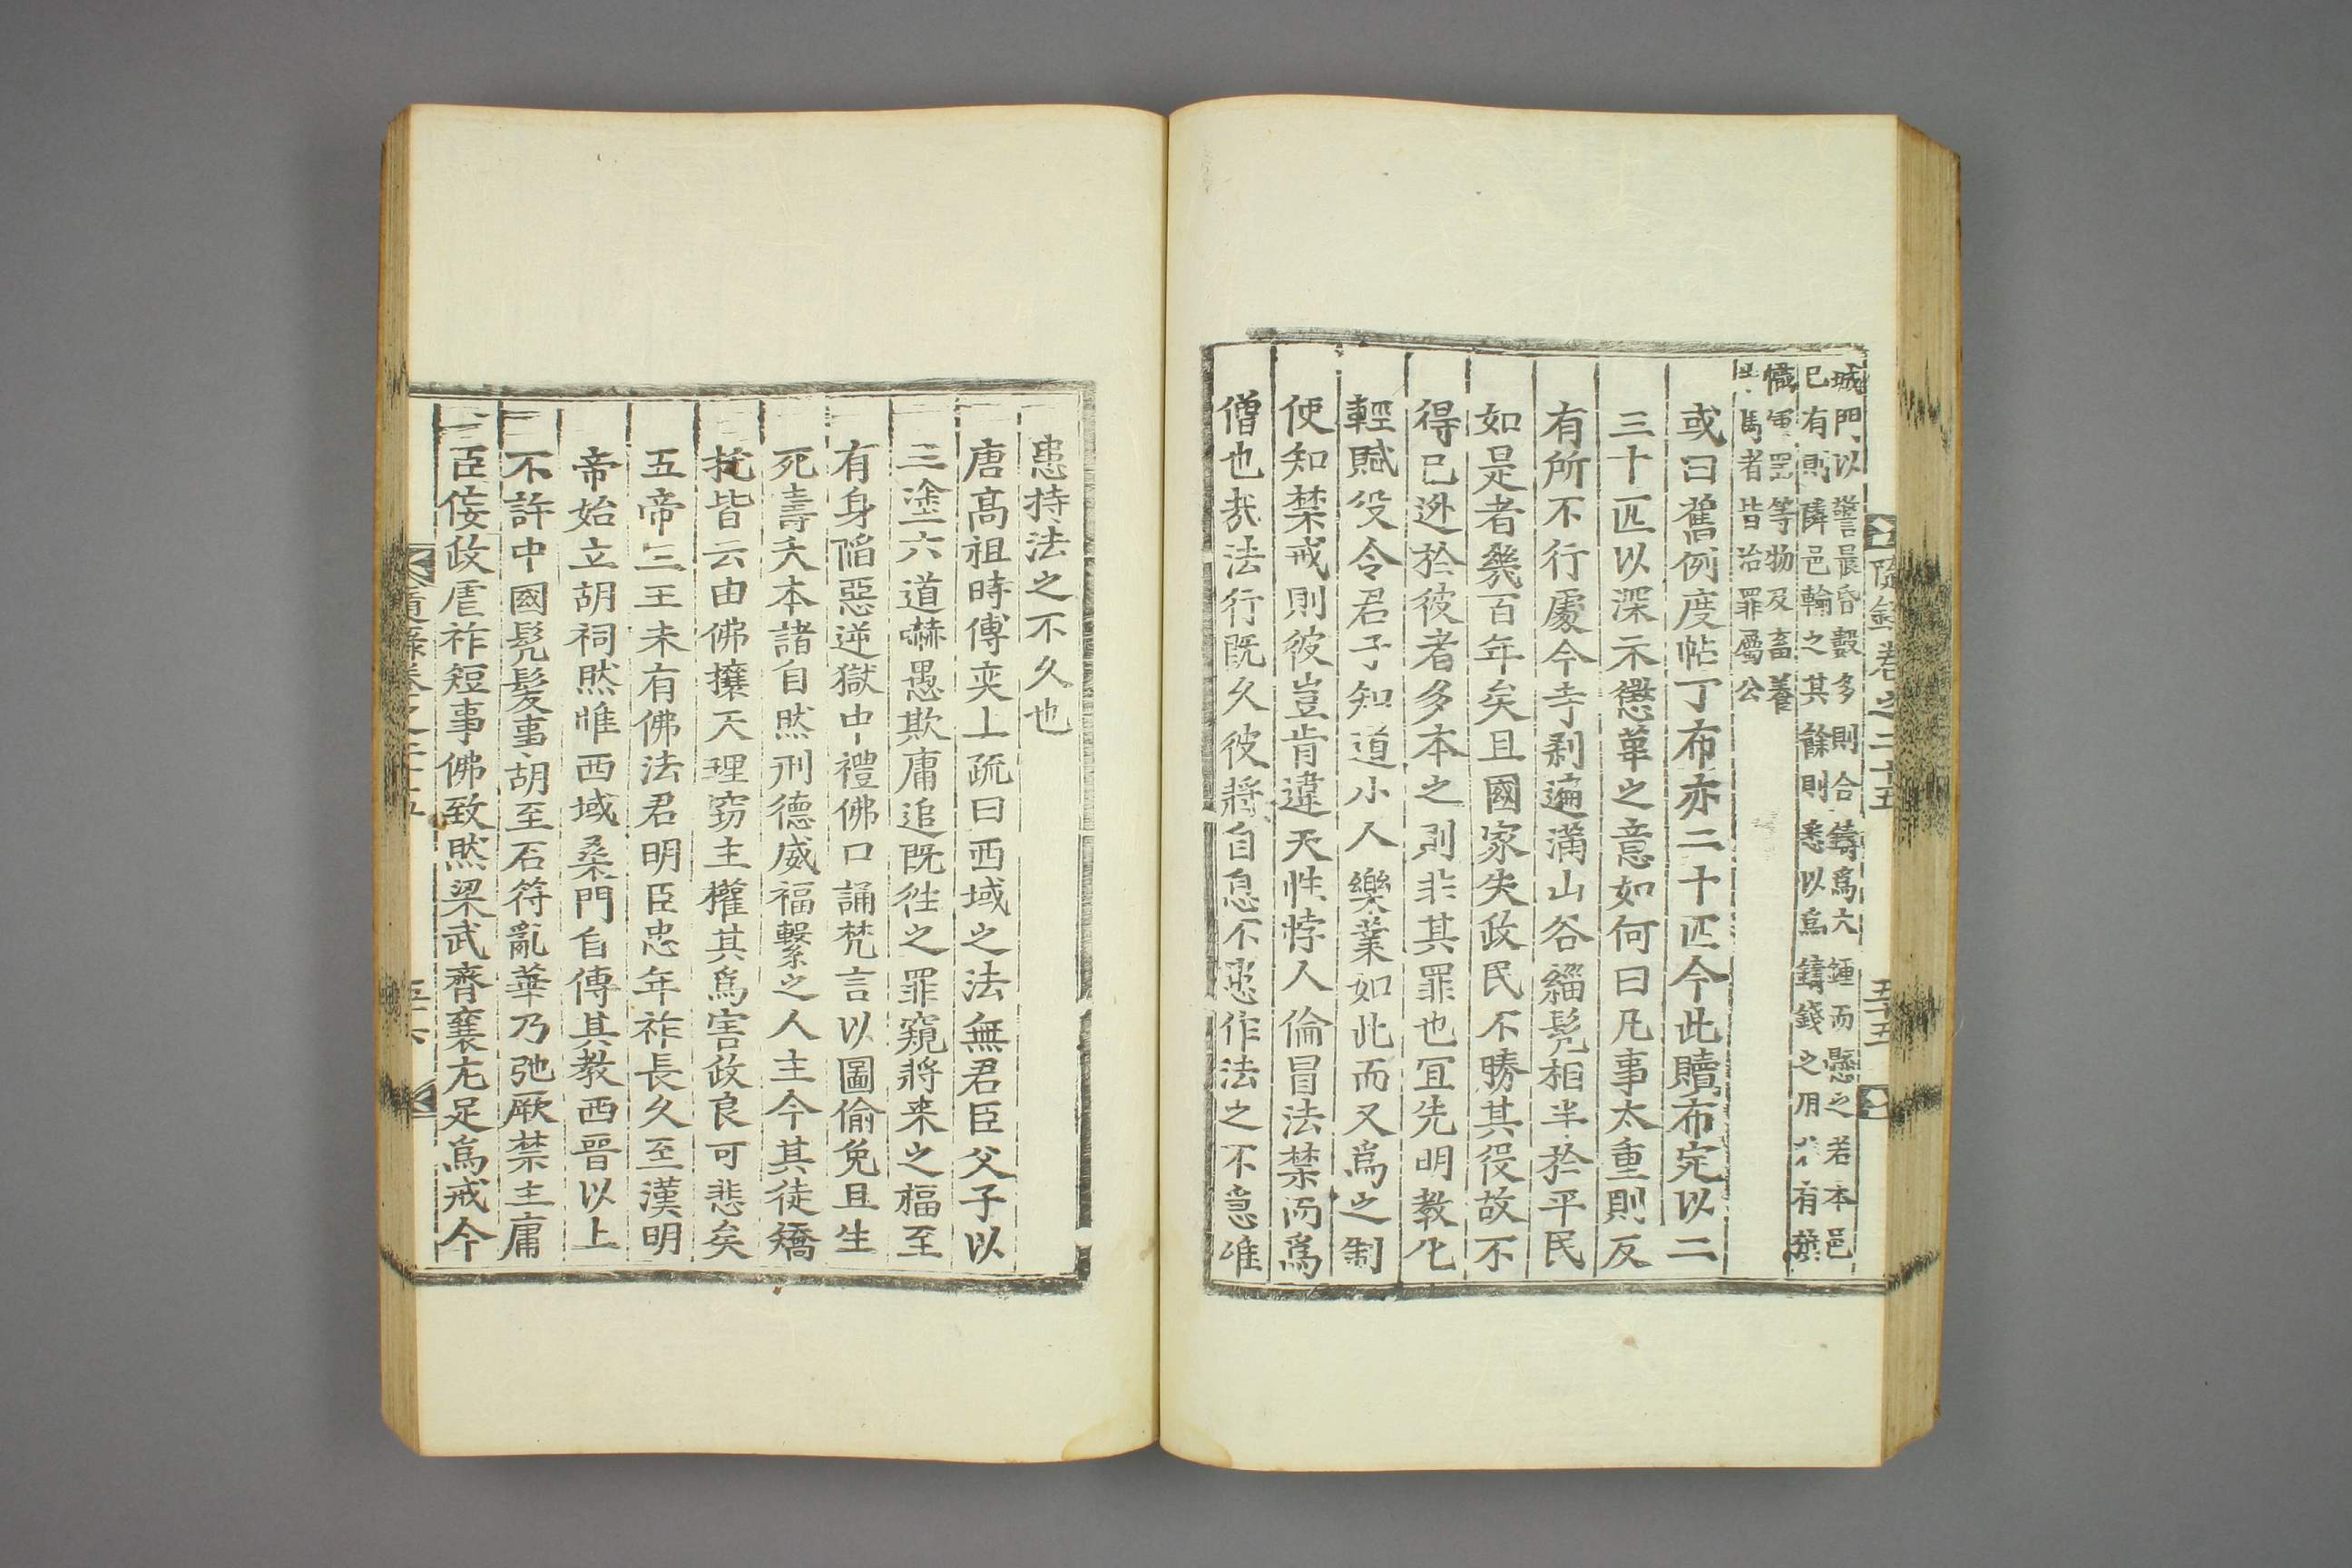 隨錄卷之二十五　五十五
城門以警晨昏數多則合鑄爲大鍾而懸之若本邑
已有則隣邑輸之其餘則悉以爲鑄錢之用若有
幟軍罡等物及畜養
牛馬者皆治罪屬公
或曰舊例度帖丁布亦二十匹今此贖布定以二
三十匹以深示懲革之意如何曰凡事太重則反
有所不行處今寺刹遍滿山谷緇髡相半於平民
如是者幾百年矣且國家失政民不勝其役故不
得已迯於彼者多本之則非其罪也冝先明教化
輕賦役令君子知道小人樂業如此而又爲之制
使知禁戒則彼豈肯違天性悖人倫冒法禁而爲
僧也㦲法行既久彼將自息不患作法之不意惟
患持法之不久也
唐髙祖時傅奕上疏曰西域之法無君臣父子以
三塗六道嚇愚欺庸追既徃之罪窺將来之福至
有身陷惡逆獄中禮佛口誦梵言以圖偷免且生
死壽夭本諸自然刑德威福繫之人主今其徒矯
託皆云由佛攘天理竊主權其爲害政良可悲矣
五帝三王未有佛法君明臣忠年祚長久至漢明
帝始立胡祠然惟西域桑門自傳其教西晉以上
不許中國髡髮事胡至石符亂華乃弛厥禁主庸
臣佞政虐祚短事佛致然梁武齊襄尤足爲戒今
隨錄卷之二十五　五十六